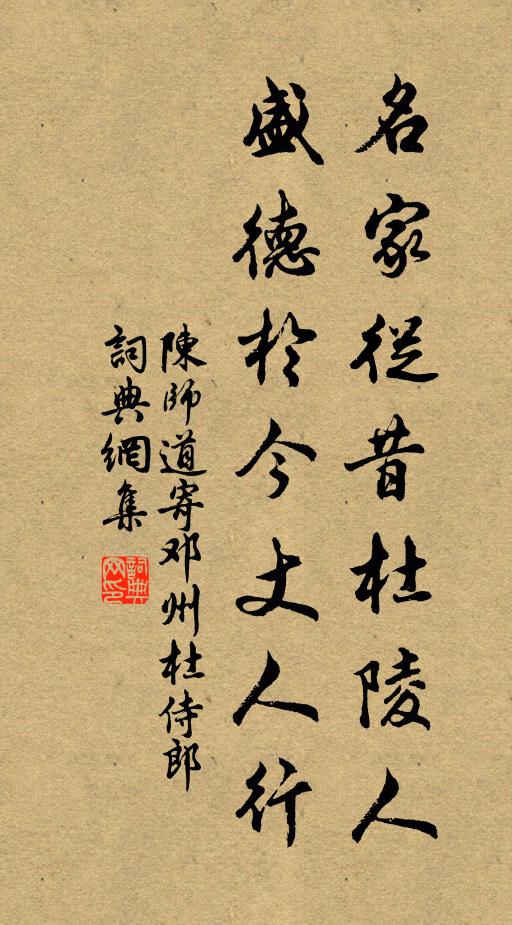 名家從昔杜陵人
盛德於今丈人行
陳師道寄邓州杜侍郎
詞典網集
詞典网印